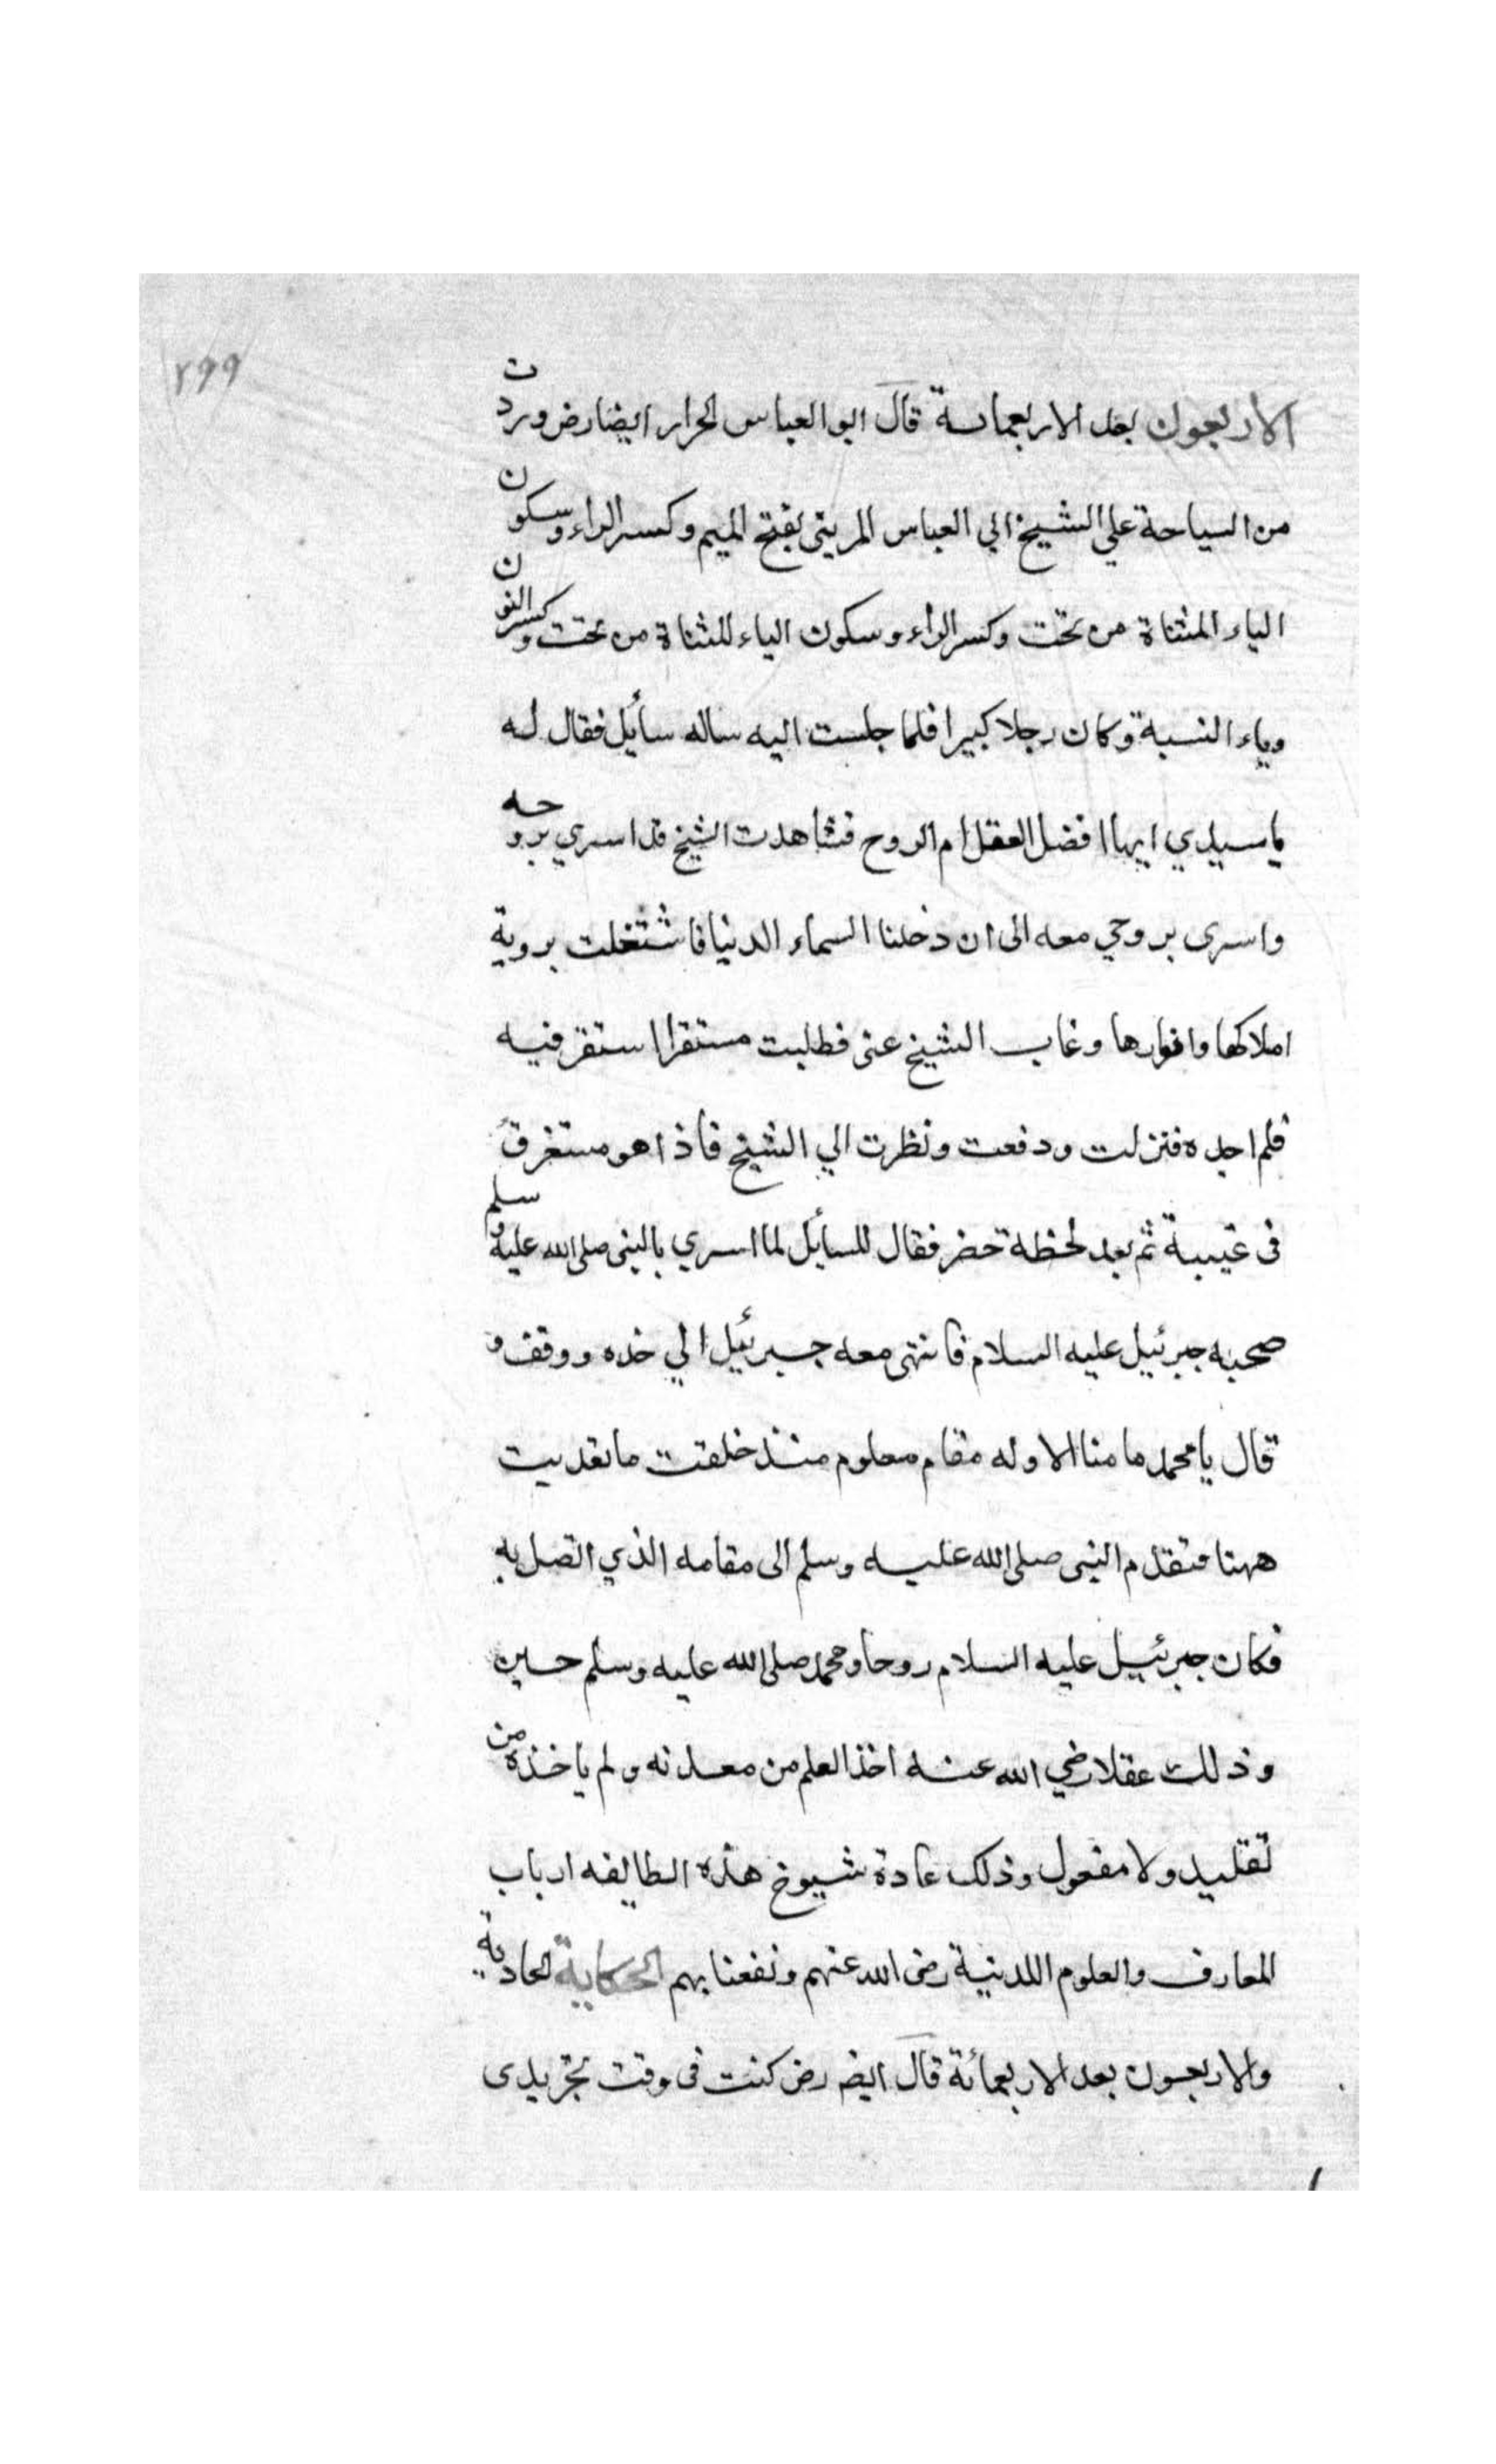 ٢٩٩
الاربعون بعد الاربعماىة قال ابو العباس الحرار ايضا رض وردت
من السياحة علي الشيخ ابي العباس المرينى بفتح الميم وكسر الراء وسكون
الياء المثناة من تحت وكسر الراء وسكون الياء المثناة من تحت وكسر النون
وياء النسبة وكان رجلا كبيرا فلما جلست اليه ساله سأيل فقال له
يا سيدي ايهما افضل العقل ام الروح فشاهدت الشيخ قد اسري بروحه
واسرى بروحي معه الى ان دخلنا السماء الدنيا فاشتغلت بروية
املاكها وانوارها وغاب الشيخ عنى فطلبت مستقرا استقر فيه
فلم اجده فنزلت ودفعت ونظرت الي الشيخ فاذا هو مستغرق
فى غيبة ثم بعد لحظة حضر فقال للسأيل لما اسري بالنبى صلى الله عليه وسلم
صحبه جبرئيل عليه السلام فانتهى معه جبرئيل الي حده ووقف و
قال يا محمد ما منا الا وله مقام معلوم منذ خلقت ما تعديت
ههنا فتقدم النبى صلى الله عليه وسلم الى مقامه الذي اتصل به
فكان جبرئيل عليه السلام روحا ومحمد صلى الله عليه وسلم حسين
وذلك عقلا رضي الله عنه اخذ العلم من معدنه ولم ياخذه من
تقليد ولا مفعول وذلك عادة شيوخ هذه الطايفه ارباب
المعارف والعلوم اللدنية رضى الله عنهم ونفعنا بهم الحكاية الحادية
والاربعون بعد الاربعمائة قال ايضه رض كنت فى وقت تجريدى